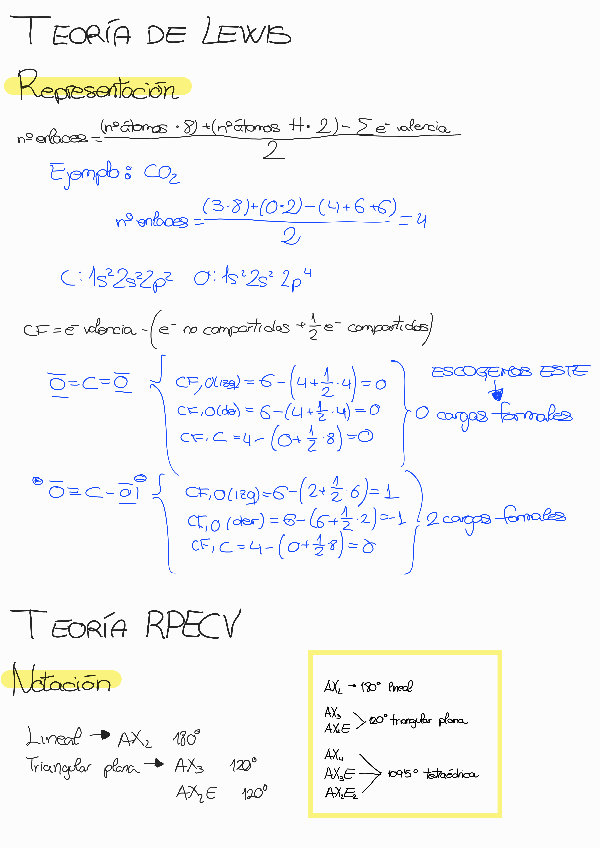 TEORÍA DE LEWIS
Representación
nº enlaces = (nº átomos · 8) + (nº átomos H · 2) − Σ e⁻ valencia / 2
Ejemplo: CO₂
nº enlaces = (3·8)+(0·2)−(4+6+6) / 2 = 4
C: 1s² 2s² 2p² O: 1s² 2s² 2p⁴
CF = e⁻ valencia − (e⁻ no compartidos + 1/2 e⁻ compartidos)
O=C=O
CF, O(izq) = 6 − (4 + 1/2 · 4) = 0
CF, O(de) = 6 − (4 + 1/2 · 4) = 0
CF, C = 4 − (0 + 1/2 · 8) = 0
ESCOGEMOS ESTE
0 cargas formales
⊕ O≡C−O| ⊖
CF, O(izq) = 6 − (2 + 1/2 6) = 1
CF, O(der) = 6 − (6 + 1/2 · 2) = −1
CF, C = 4 − (0 + 1/2 8) = 0
2 cargas formales
TEORÍA RPECV
Notación
Lineal → AX₂ 180°
Triangular plana → AX₃ 120°
AX₂E 120°
AX₂ → 180° lineal
AX₃
AX₂E
120° triangular plana
AX₄
AX₃E → 109'5° tetraédrica
AX₂E₂